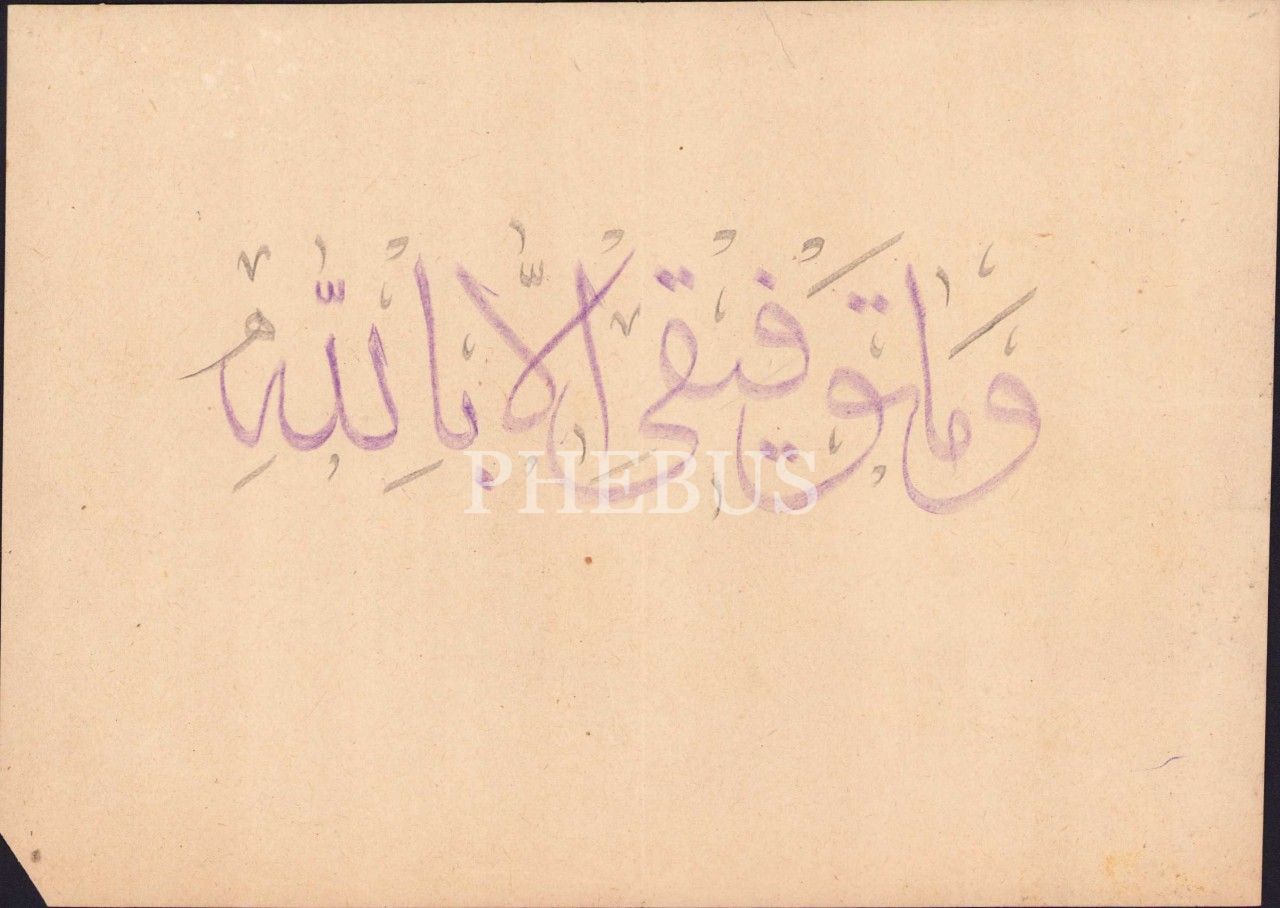 وَمَا تَوفيقى اِلَّا بِاللّٰهِ
PHEBUS